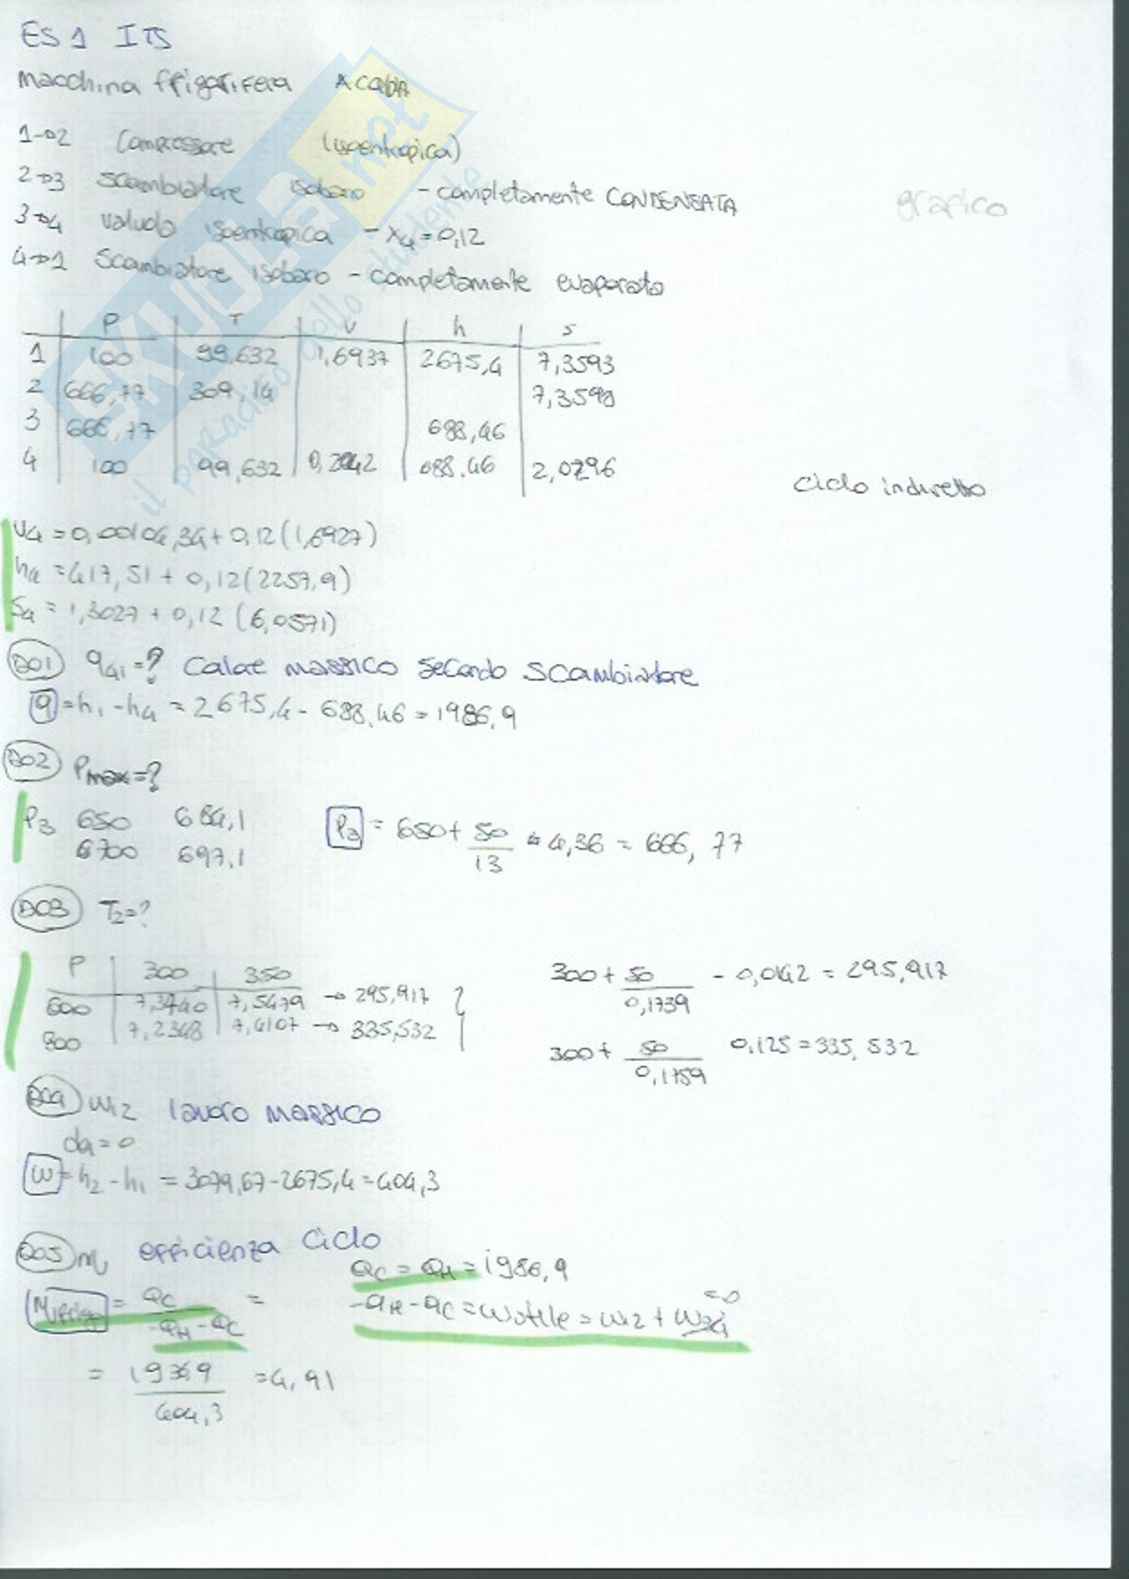 ES 1 ITS
Macchina frigorifera ACQUA
1→2 Compressore (isoentropica)
2→3 scambiatore isobaro - completamente CONDENSATA
grafico
3→4 valvola isoentropica - x4=0,12
4→1 Scambiatore isobaro - completamente evaporato
P T v h s
1 100 99,632 1,6937 2675,4 7,3593
2 666,77 309,14 7,3598
3 666,77 688,46
4 100 99,632 0,2042 688.46 2,0296
Ciclo indiretto
v4 = 0,00104,34 + 0,12 (1,6927)
h4 = 417,51 + 0,12 (2257,9)
s4 = 1,3027 + 0,12 (6,0571)
DO1 q41=? Calore MASSICO Secondo SCAMBIATORE
q = h1 - h4 = 2675,4 - 688,46 = 1986,9
DO2 Pmax=?
P3 650 684,1
6700 697,1
P3 = 650 + 50/13 · 4,36 = 666,77
DO3 T2=?
P 300 350
600 7,3740 7,5479 → 295,917
800 7,2348 7,4107 → 335,532
300 + 50/0,1739 - 0,0142 = 295,917
300 + 50/0,1759 0,125 = 335,532
DO4 w12 lavoro MASSICO
dq = 0
w = h2 - h1 = 3079,67 - 2675,4 = 404,3
DO5 η efficienza Ciclo
QC = QH = 1986,9
ηfrigo = QC/-QH-QC =
-QH - QC = Wutile = w12 + w34 =0
= 19869/404,3 = 4,91
SKUOLA.net
il paradiso dello studente